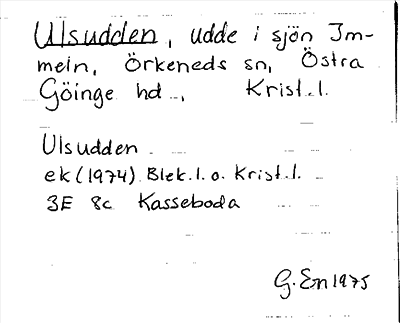 Ulsudden, udde i sjön Im-
meln, Örkeneds sn, Östra
Göinge hd., Krist. l.
Ulsudden
ek (1974) Blek. l. o. Krist. l.
3E 8c Kasseboda
G. En 1975